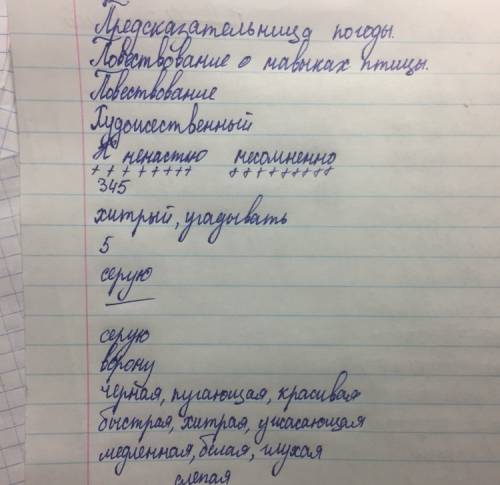 Предсказательница погоды.
Повествование о навыках птицы.
Повествование
Художественный
К ненастью несомненно
345
хитрый, угадывать
5
серую
серую
ворону
чёрная, пугающая, красивая
быстрая, хитрая, ужасающая
медленная, белая, глухая
слепая